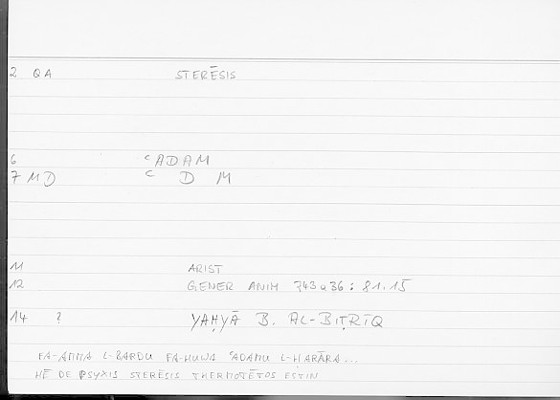 2 QA STERĒSIS
6 ʿADAM
7 MD ʿ D M
11 ARIST
12 GENER ANIM 743a36 : 81.15
14 ? YAḤYĀ B. AL-BIṬRĪQ
FA-AMMA L-BARDU FA-HUWA ʿADAMU L-ḤARĀRA...
HĒ DE PSYXIS STERĒSIS THERMOTĒTOS ESTIN